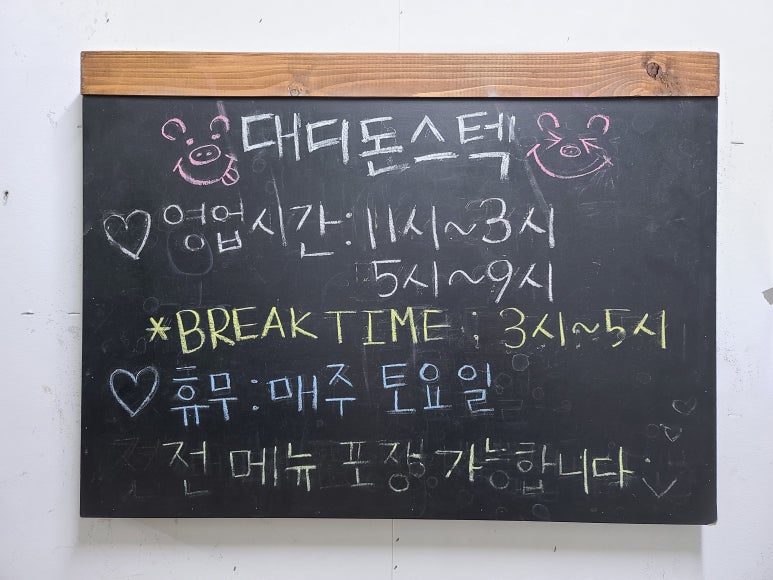 대디돈스텍
영업시간:11시~3시
5시~9시
*BREAK TIME : 3시~5시
휴무:매주 토요일
전 메뉴 포장 가능합니다